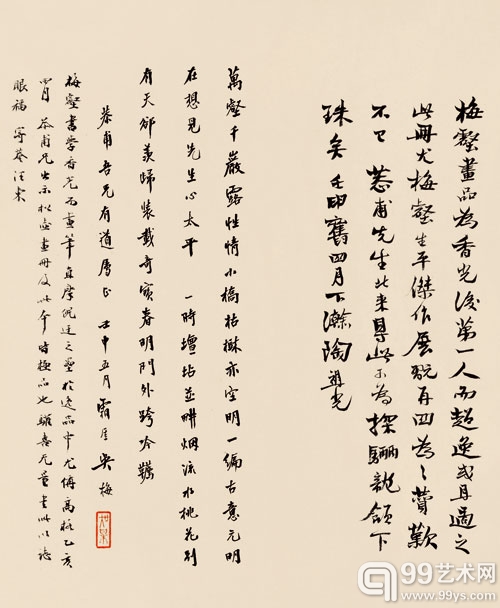 梅壑畫品為香光後第一人而超逸或且過之
此冊尤梅壑生平傑作展翫再四為之贊歎
不已 恭甫先生北來得此不為探驪龍領下
珠矣 壬申舊四月下澣陶
萬壑千巖露性情小橋枯樹亦空明一編古意元明
在想見先生心太平 一時壇坫並畊烟流水桃花別
有天卻羡歸裝載奇寶春明門外跨吟鞯
恭甫吾兄有道屬正 壬申五月霜厓吳梅
梅壑書學香光而畫筆直摩 之壘於逸品中尤儔高格乙亥
四月 恭甫兄出示松壺畫冊及此午時極品也歡喜无量書此以誌
眼福
99艺术网
www.99ys.com